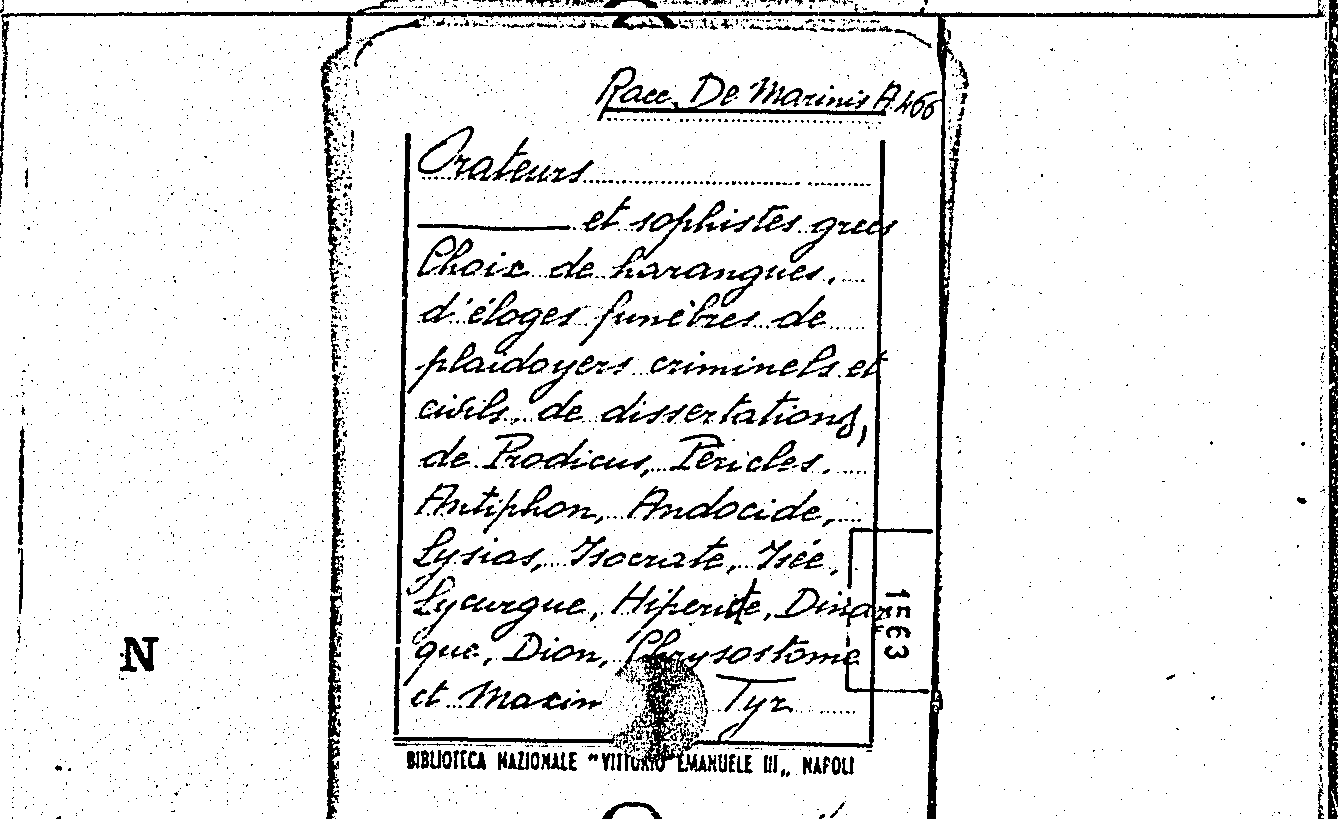 Racc. De Marinis A.466
Orateurs
et sophistes grecs
Choix de harangues,
d'éloges funèbres de
plaidoyers criminels et
civils, de dissertations,
de Prodicus, Péricles,
Antiphon, Andocide,
Lysias, Isocrate, Isée,
Lycurgue, Hiperide, Dinar
que, Dion, Chrysostome
et Maxim Tyr
BIBLIOTECA NAZIONALE "VITTORIO EMANUELE III„ NAPOLI
1563
N